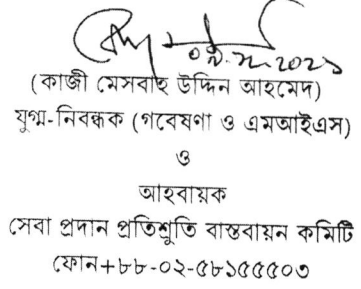 (কাজী মেসবাহ উদ্দিন আহমেদ)
যুগ্ম-নিবন্ধক (গবেষণা ও এমআইএস)
ও
আহবায়ক
সেবা প্রদান প্রতিশ্রুতি বাস্তবায়ন কমিটি
ফোন+৮৮-০২-৫৮১৫৫৫০৩